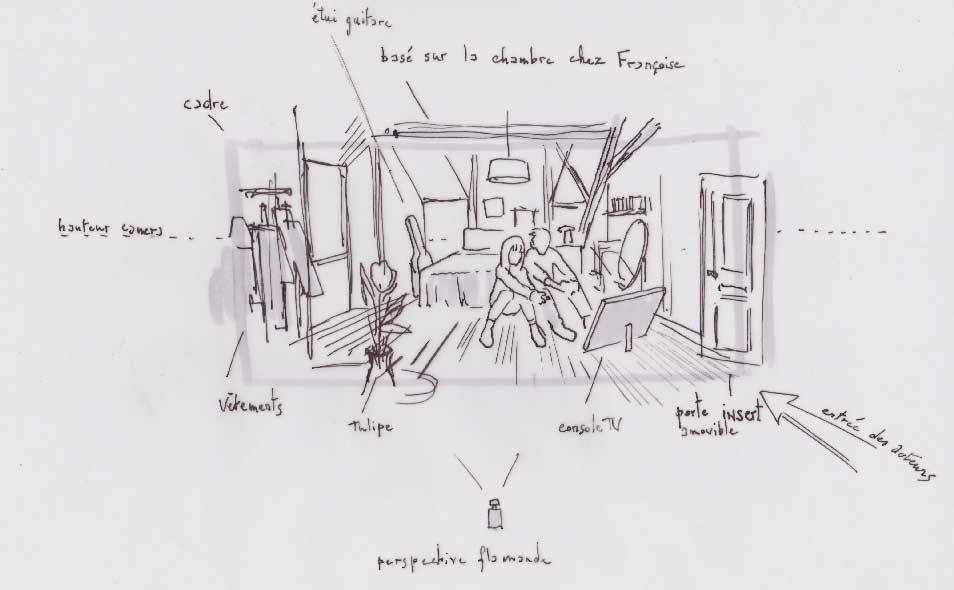 étui guitare
basé sur la chambre chez Françoise
cadre
hauteur camera
Vêtements
Tulipe
console TV
porte insert
amovible
entrée des acteurs
perspective flamande